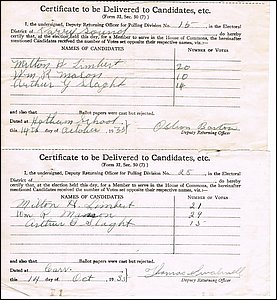 Certificate to be Delivered to Candidates, etc.
(Form 32, Sec. 50 (7) )
I, the undersigned, Deputy Returning Officer for Polling Division No. 15 in the Electoral
District of Parry Sound do hereby
certify that, at the election held this day, for a Member to serve in the House of Commons, the undermentioned
candidates received the number of Votes set opposite their respective names, viz.:—
NAMES OF CANDIDATES NUMBER OF VOTES
Milton H Limbert 20
Wm R Mason 10
Arthur G Slaght 14
And also that Ballot papers were cast but rejected.
Dated at School
this 14th day of October 1935
Deputy Returning Officer
Certificate to be Delivered to Candidates, etc.
(Form 32, Sec. 50 (7) )
I, the undersigned, Deputy Returning Officer for Polling Division No. 25 in the Electoral
District of do hereby
certify that, at the election held this day, for a Member to serve in the House of Commons, the undermentioned
candidates received the number of Votes set opposite their respective names, viz.:—
NAMES OF CANDIDATES NUMBER OF VOTES
Milton H. Limbert 21
Wm R 29
Arthur G Slaght 15
And also that Ballot papers were cast but rejected.
Dated at
this 14 day of Oct 1935 Thomas
Deputy Returning Officer